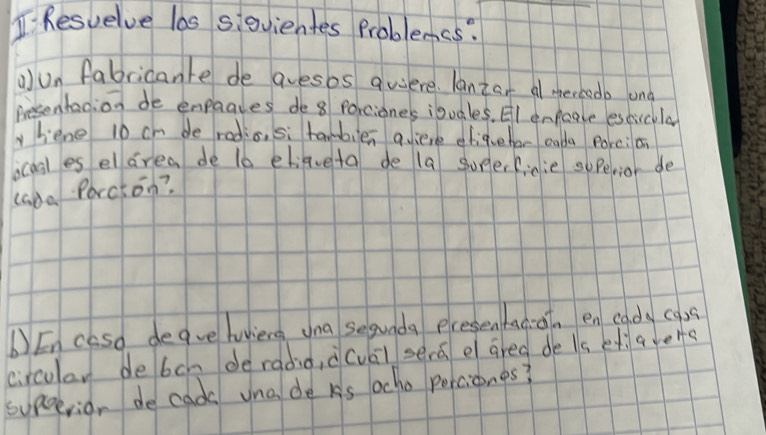 II- Resuelve los siguientes Problemas:
a) Un fabricante de quesos quiere lanzar al mercado una
Presentación de enpaques de 8 Porciones iguales. El enpaque es circular
y tiene 10 cm de radio, si tambien quiere etiquetar cada Porción
¿cual es el área de la etiqueta de la superficie superior de
cada Porción?.
b) En caso de que tuviera una segunda presentación en cada caja
circular de 6cm de radio, ¿cuál será el área de la etiqueta
superior de cada una de las ocho porciones?